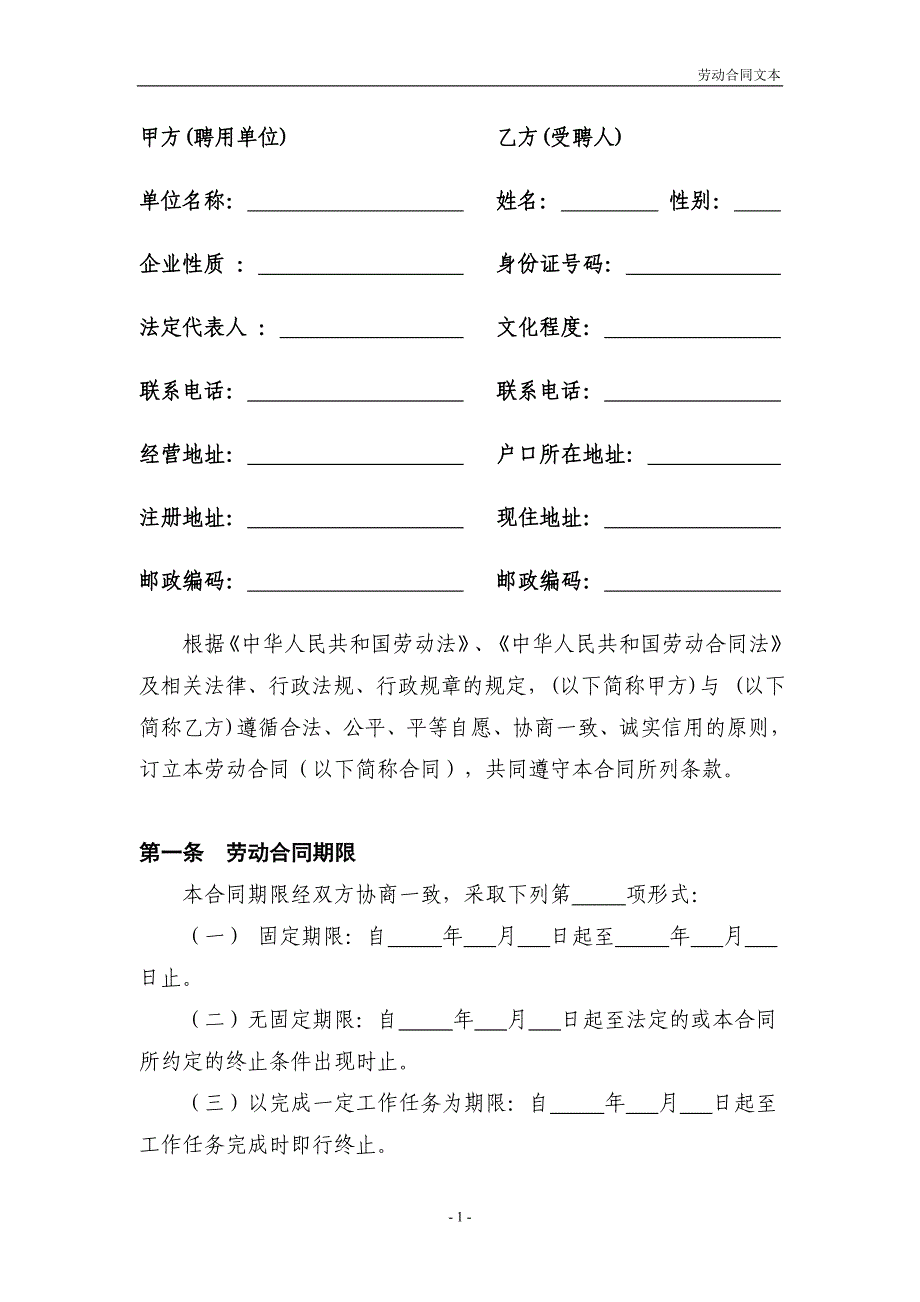 劳动合同文本
甲方(聘用单位) 乙方(受聘人)
单位名称：____________________ 姓名：_________ 性别：____
企业性质 ：___________________ 身份证号码：______________
法定代表人 ：_________________ 文化程度：________________
联系电话：____________________ 联系电话：________________
经营地址：____________________ 户口所在地址：____________
注册地址：____________________ 现住地址：________________
邮政编码：____________________ 邮政编码：________________
根据《中华人民共和国劳动法》、《中华人民共和国劳动合同法》
及相关法律、行政法规、行政规章的规定，(以下简称甲方)与 (以下
简称乙方)遵循合法、公平、平等自愿、协商一致、诚实信用的原则，
订立本劳动合同（以下简称合同），共同遵守本合同所列条款。
第一条 劳动合同期限
本合同期限经双方协商一致，采取下列第_____项形式：
（一） 固定期限：自_____年___月___日起至_____年___月___
日止。
（二）无固定期限：自_____年___月___日起至法定的或本合同
所约定的终止条件出现时止。
（三）以完成一定工作任务为期限：自_____年___月___日起至
工作任务完成时即行终止。
- 1 -